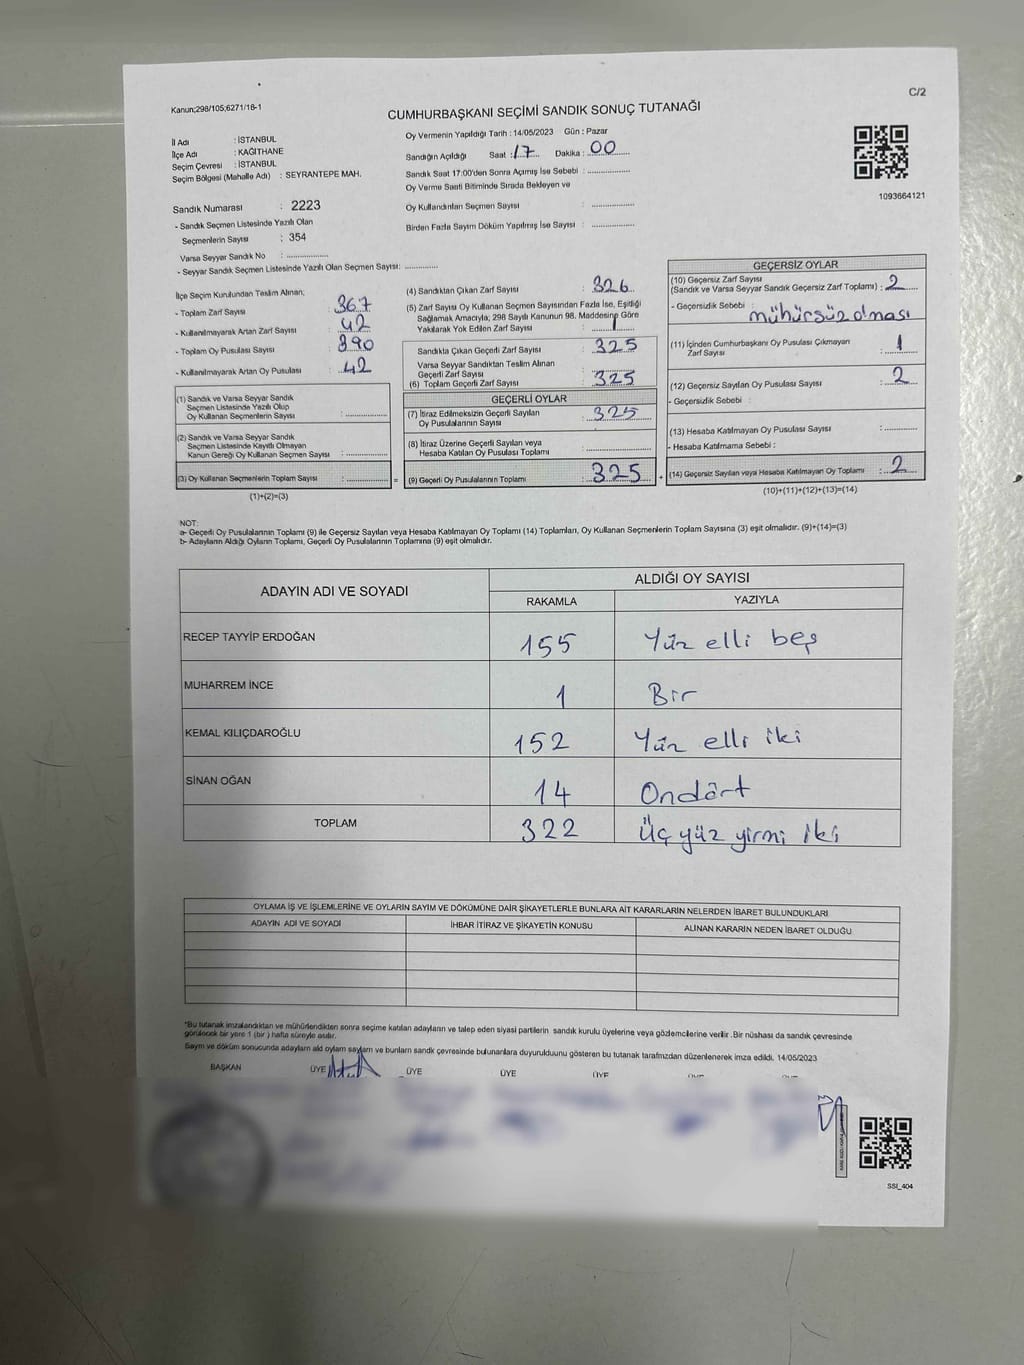 Kanun;298/105;6271/16-1
C/2
CUMHURBAŞKANI SEÇİMİ SANDIK SONUÇ TUTANAĞI
İl Adı : İSTANBUL
İlçe Adı : KAĞITHANE
Seçim Çevresi : İSTANBUL
Seçim Bölgesi (Mahalle Adı) : SEYRANTEPE MAH.
Oy Vermenin Yapıldığı Tarih : 14/05/2023 Gün : Pazar
Sandığın Açıldığı Saat : 17 Dakika : 00
Sandık Saat 17:00'den Sonra Açımış İse Sebebi :
Oy Verme Saati Bitiminde Sırada Bekleyen ve
Oy Kullandırılan Seçmen Sayısı :
Birden Fazla Sayım Döküm Yapılmış İse Sayısı :
1093664121
Sandık Numarası : 2223
- Sandık Seçmen Listesinde Yazılı Olan
Seçmenlerin Sayısı : 354
Varsa Seyyar Sandık No :
- Seyyar Sandık Seçmen Listesinde Yazılı Olan Seçmen Sayısı:
İlçe Seçim Kurulundan Teslim Alınan;
- Toplam Zarf Sayısı : 367
- Kullanılmayarak Artan Zarf Sayısı : 42
- Toplam Oy Pusulası Sayısı : 390
- Kullanılmayarak Artan Oy Pusulası : 42
(1) Sandık ve Varsa Seyyar Sandık
Seçmen Listesinde Yazılı Olup
Oy Kullanan Seçmenlerin Sayısı :
(2) Sandık ve Varsa Seyyar Sandık
Seçmen Listesinde Kayıtlı Olmayan
Kanun Gereği Oy Kullanan Seçmen Sayısı :
(3) Oy Kullanan Seçmenlerin Toplam Sayısı :
(1)+(2)=(3)
(4) Sandıktan Çıkan Zarf Sayısı : 326
(5) Zarf Sayısı Oy Kullanan Seçmen Sayısından Fazla İse, Eşitliği
Sağlamak Amacıyla; 298 Sayılı Kanunun 98. Maddesine Göre
Yakılarak Yok Edilen Zarf Sayısı : 1
Sandıkta Çıkan Geçerli Zarf Sayısı : 325
Varsa Seyyar Sandıktan Teslim Alınan
Geçerli Zarf Sayısı :
(6) Toplam Geçerli Zarf Sayısı : 325
GEÇERLİ OYLAR
(7) İtiraz Edilmeksizin Geçerli Sayılan
Oy Pusulalarının Sayısı : 325
(8) İtiraz Üzerine Geçerli Sayılan veya
Hesaba Katılan Oy Pusulası Toplamı :
= (9) Geçerli Oy Pusulalarının Toplamı : 325 +
GEÇERSİZ OYLAR
(10) Geçersiz Zarf Sayısı
(Sandık ve Varsa Seyyar Sandık Geçersiz Zarf Toplamı) : 2
- Geçersizlik Sebebi : mühürsüz olması
(11) İçinden Cumhurbaşkanı Oy Pusulası Çıkmayan
Zarf Sayısı : 1
(12) Geçersiz Sayılan Oy Pusulası Sayısı : 2
- Geçersizlik Sebebi :
(13) Hesaba Katılmayan Oy Pusulası Sayısı :
- Hesaba Katılmama Sebebi :
(14) Geçersiz Sayılan veya Hesaba Katılmayan Oy Toplamı : 2
(10)+(11)+(12)+(13)=(14)
NOT:
a- Geçerli Oy Pusulalarının Toplamı (9) ile Geçersiz Sayılan veya Hesaba Katılmayan Oy Toplamı (14) Toplamları, Oy Kullanan Seçmenlerin Toplam Sayısına (3) eşit olmalıdır. (9)+(14)=(3)
b- Adayların Aldığı Oyların Toplamı, Geçerli Oy Pusulalarının Toplamına (9) eşit olmalıdır.
ADAYIN ADI VE SOYADI ALDIĞI OY SAYISI
RAKAMLA YAZIYLA
RECEP TAYYİP ERDOĞAN 155 Yüz elli beş
MUHARREM İNCE 1 Bir
KEMAL KILIÇDAROĞLU 152 Yüz elli iki
SİNAN OĞAN 14 Ondört
TOPLAM 322 Üç yüz yirmi iki
OYLAMA İŞ VE İŞLEMLERİNE VE OYLARIN SAYIM VE DÖKÜMÜNE DAİR ŞİKAYETLERLE BUNLARA AİT KARARLARIN NELERDEN İBARET BULUNDUKLARI
ADAYIN ADI VE SOYADI İHBAR İTİRAZ VE ŞİKAYETİN KONUSU ALINAN KARARIN NEDEN İBARET OLDUĞU
*Bu tutanak imzalandıktan ve mühürlendikten sonra seçime katılan adayların ve talep eden siyasi partilerin sandık kurulu üyelerine veya gözlemcilerine verilir .Bir nüshası da sandık çevresinde
görülecek bir yere 1 (bir ) hafta süreyle asılır.
Sayım ve döküm sonucunda adayların aldı oyların sayların ve bunların sandık çevresinde bulunanlara duyurulduunu gösteren bu tutanak tarafımızdan düzenlenerek imza edildi. 14/05/2023
BAŞKAN ÜYE ÜYE ÜYE ÜYE
SSI_404